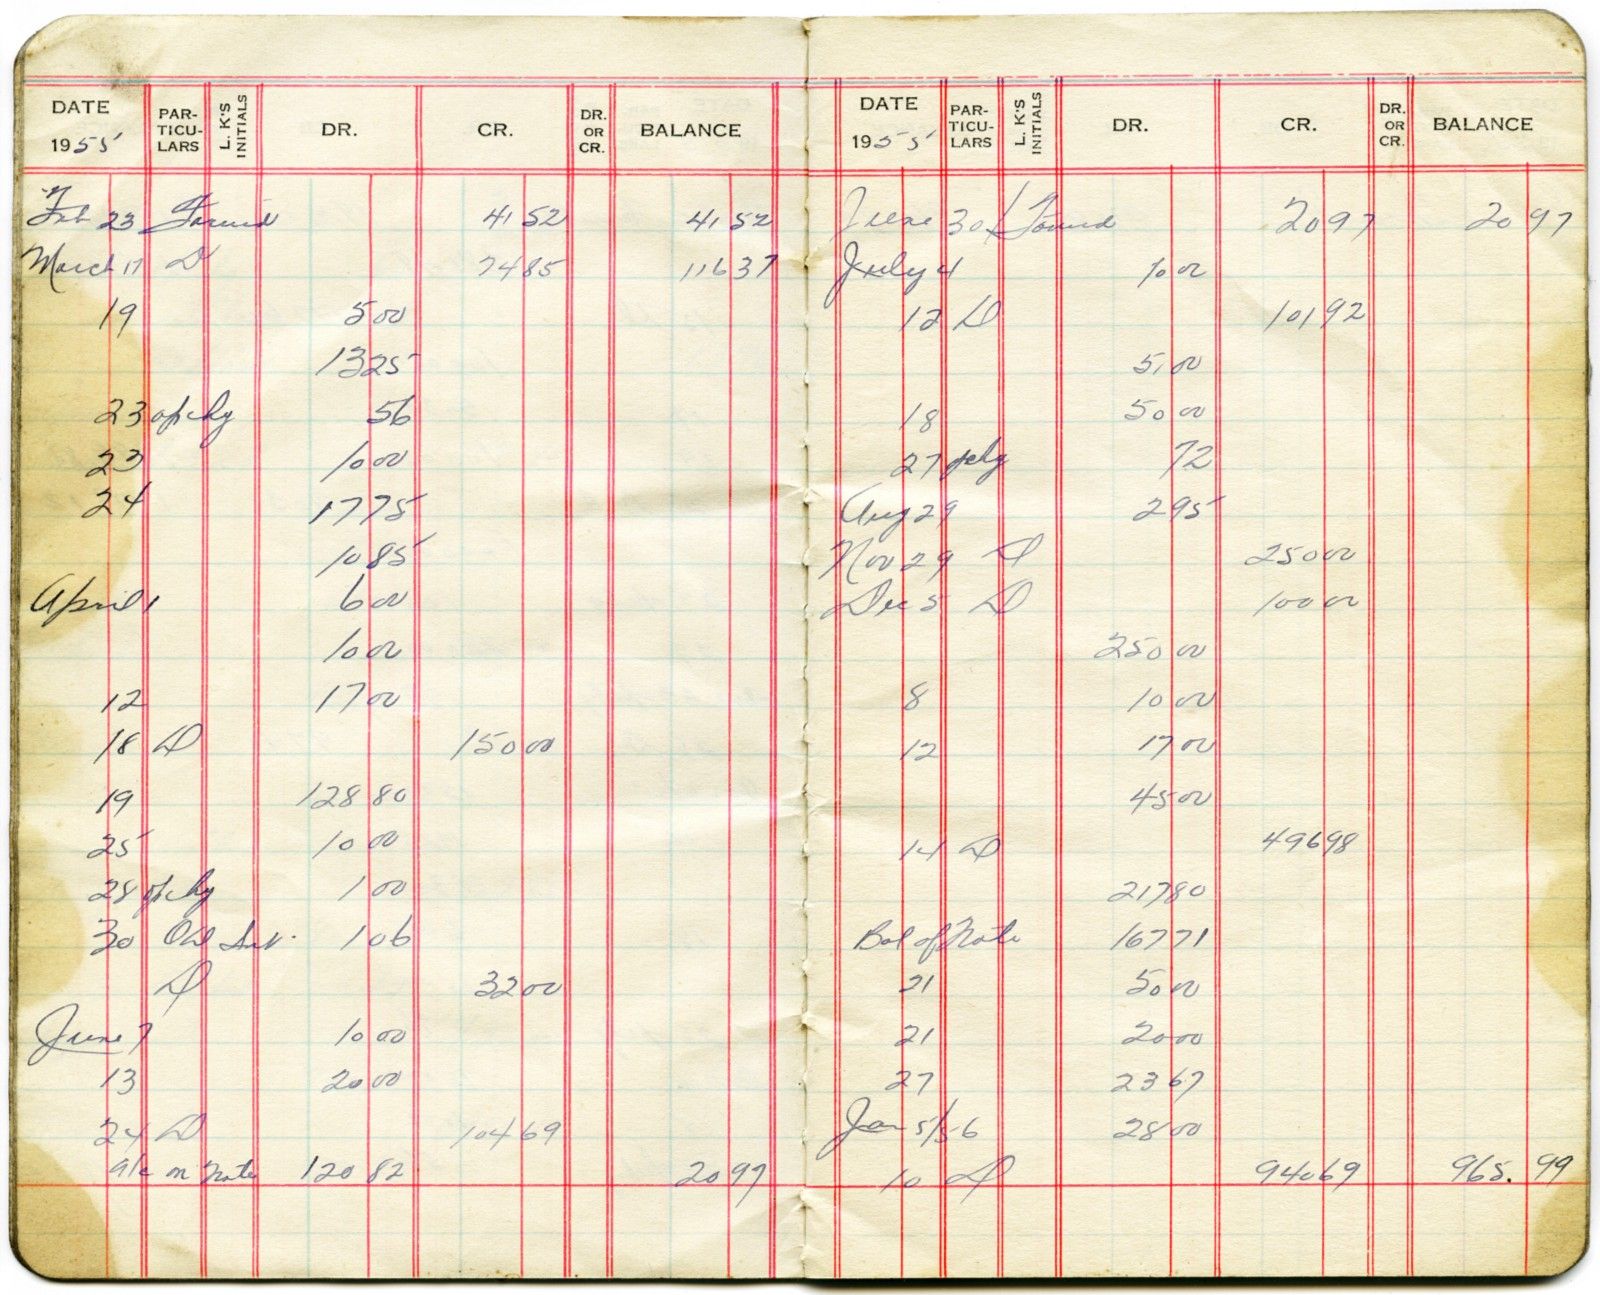 DATE 1955 PAR-TICU-LARS L. K'S INITIALS DR. CR. DR. OR CR. BALANCE
Feb 23 Forward 41 52 41 52
March 17 D 74 85 116 37
19 5 00
13 25
23 op chg 56
23 10 00
24 17 75
10 85
April 1 6 00
10 00
12 17 00
18 D 150 00
19 128 80
25 10 00
28 op chg 1 00
30 Od Int. 1 06
D 32 00
June 7 10 00
13 20 00
24 D 104 69
a/c on Note 120 82 20 97
DATE 1955 PAR-TICU-LARS L. K'S INITIALS DR. CR. DR. OR CR. BALANCE
June 30 Forward 20 97 20 97
July 4 10 00
12 D 101 92
51 00
18 50 00
27 chg 72
Aug 29 2 95
Nov 29 D 250 00
Dec 5 D 100 00
250 00
8 10 00
12 17 00
45 00
14 D 496 98
217 80
Bal of Note 167 71
21 50 00
21 20 00
27 23 67
Jan 5/56 28 00
10 D 940 69 965.99